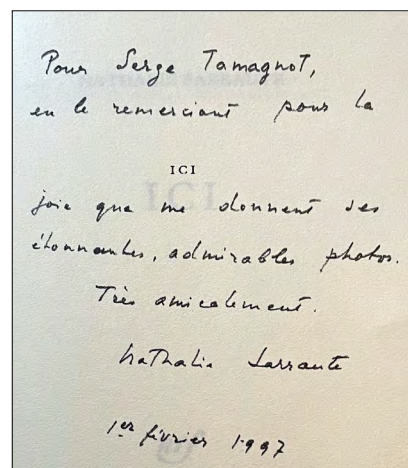 Pour Serge Tamagnot,
en le remerciant pour la
ICI
joie que me donnent ses
étonnantes, admirables photos.
Très amicalement.
Nathalie Sarraute
1er février 1997